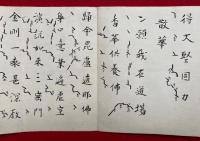 得大堅固力
散華
願我在道場
香華供養佛
歸命毘盧遮那佛
身口意業遍虚空
演説如来三密門
金剛一乗甚深教